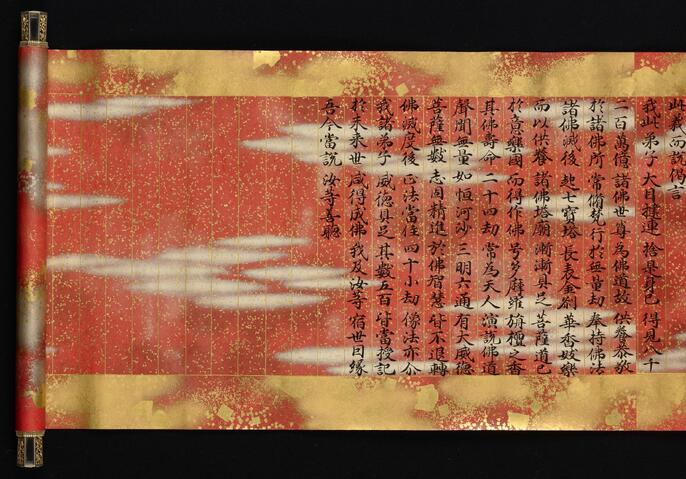 此義而說偈言
我此弟子 大目揵連 捨是身已 得見八千
二百萬億 諸佛世尊 為佛道故 供養恭敬
於諸佛所 常脩梵行 於無量劫 奉持佛法
諸佛滅後 起七寶塔 長表金刹 華香妓樂
而以供養 諸佛塔廟 漸漸具足 菩薩道已
於意樂國 而得作佛 号多摩羅 栴檀之香
其佛壽命 二十四劫 常為天人 演說佛道
聲聞無量 如恒河沙 三明六通 有大威德
菩薩無數 志固精進 於佛智慧 皆不退轉
佛滅度後 正法當住 四十小劫 像法亦尒
我諸弟子 威德具足 其數五百 皆當授記
於未來世 咸得成佛 我及汝等 宿世因緣
吾今當說 汝等善聽